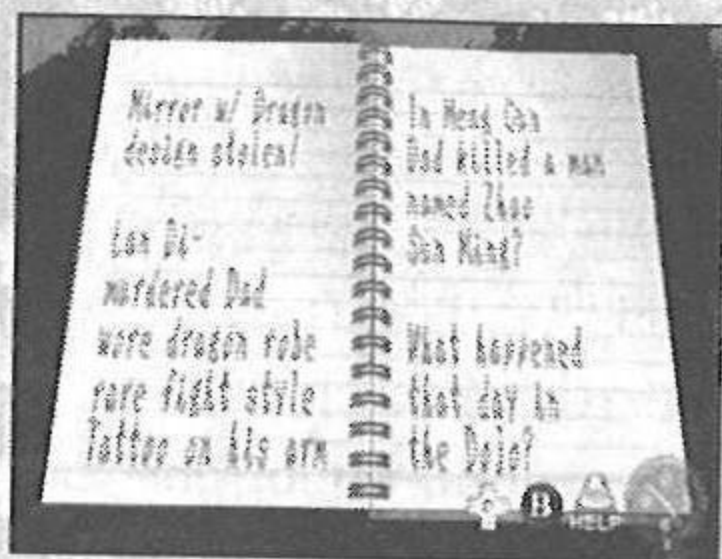 Mirror w/ Dragon
design stolen!
Lan Di-
murdered Dad
wore dragon robe
rare fight style
Tattoo on his arm
In Meng Cun
Dad killed a man
named Zhao
Sun Ming?
What happened
that day in
the Dojo?
B
HELP